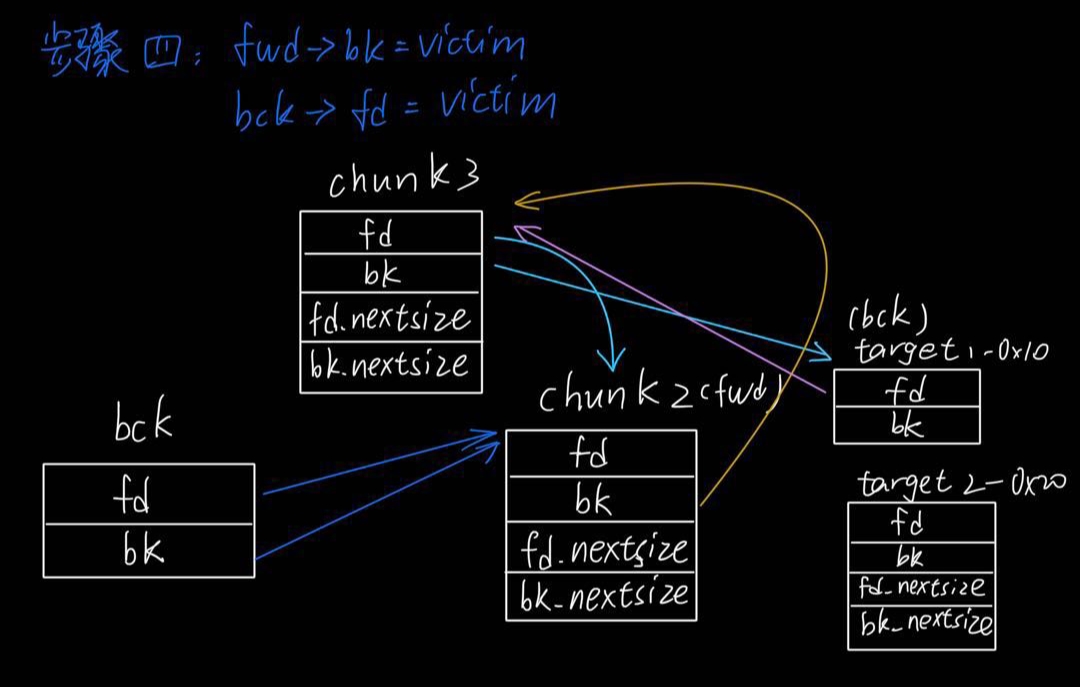 步骤四: fwd→bk=victim
bck→fd=victim
chunk3
fd
bk
fd.nextsize
bk.nextsize
(bck)
target1-0x10
fd
bk
chunk2(fwd)
fd
bk
fd.nextsize
bk_nextsize
bck
fd
bk
target2-0x20
fd
bk
fd_nextsize
bk_nextsize